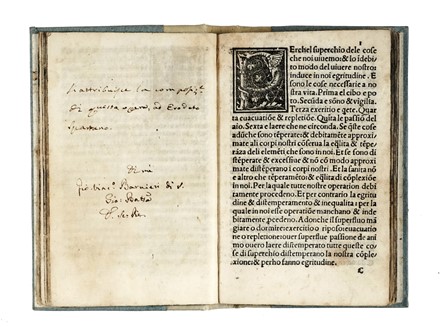 Si attribuisce la composiz.
di quest' opera, ad Erodoto
Di me
Gio:
P Erchel superchio dele cose
che noi uiuemo & lo idebito
modo del uiuere nostro
induce in noi egritudine. E
sono le cose necessarie a no
stra vita. Prima el cibo e po
to. Secūda e sōno & vigilia.
Terza exertio e qete. Quar
ta euacuatiōe & repletiōe. Quīta le passiōi del
aīo. Sexta e laere che ne circonda. Se q̄ste cose
adūche sōno tēperate & debitamēte approxi
mate ali corpi nostri cōserua la eq̄lita & tēpera
reza deli elemēti che sono in noi. Et se sono di
stēperate & excessiue & nō cō modo approxi
mate distēperano i corpi nostri. Et la sanita nō
e altro che tēperamēto & eq̄lita di cōplexiōe in
noi. Per laquale tutte nostre operation debi
tamente procedeno. Et per contrario la egritu
dine & distemperamento & inequalita: per la
quale in noi esse operatiōe manchano & inde
bitamente procedeno. Adonche il superfluo mā
giare o dormire e exercitio o riposo euacuatio
ne o repletione ouero superflue passione de ani
mo ouero laere distemperato tutte queste co
se di superchio distemperano la nostra cōple
xione: & perho fanno egritudine.